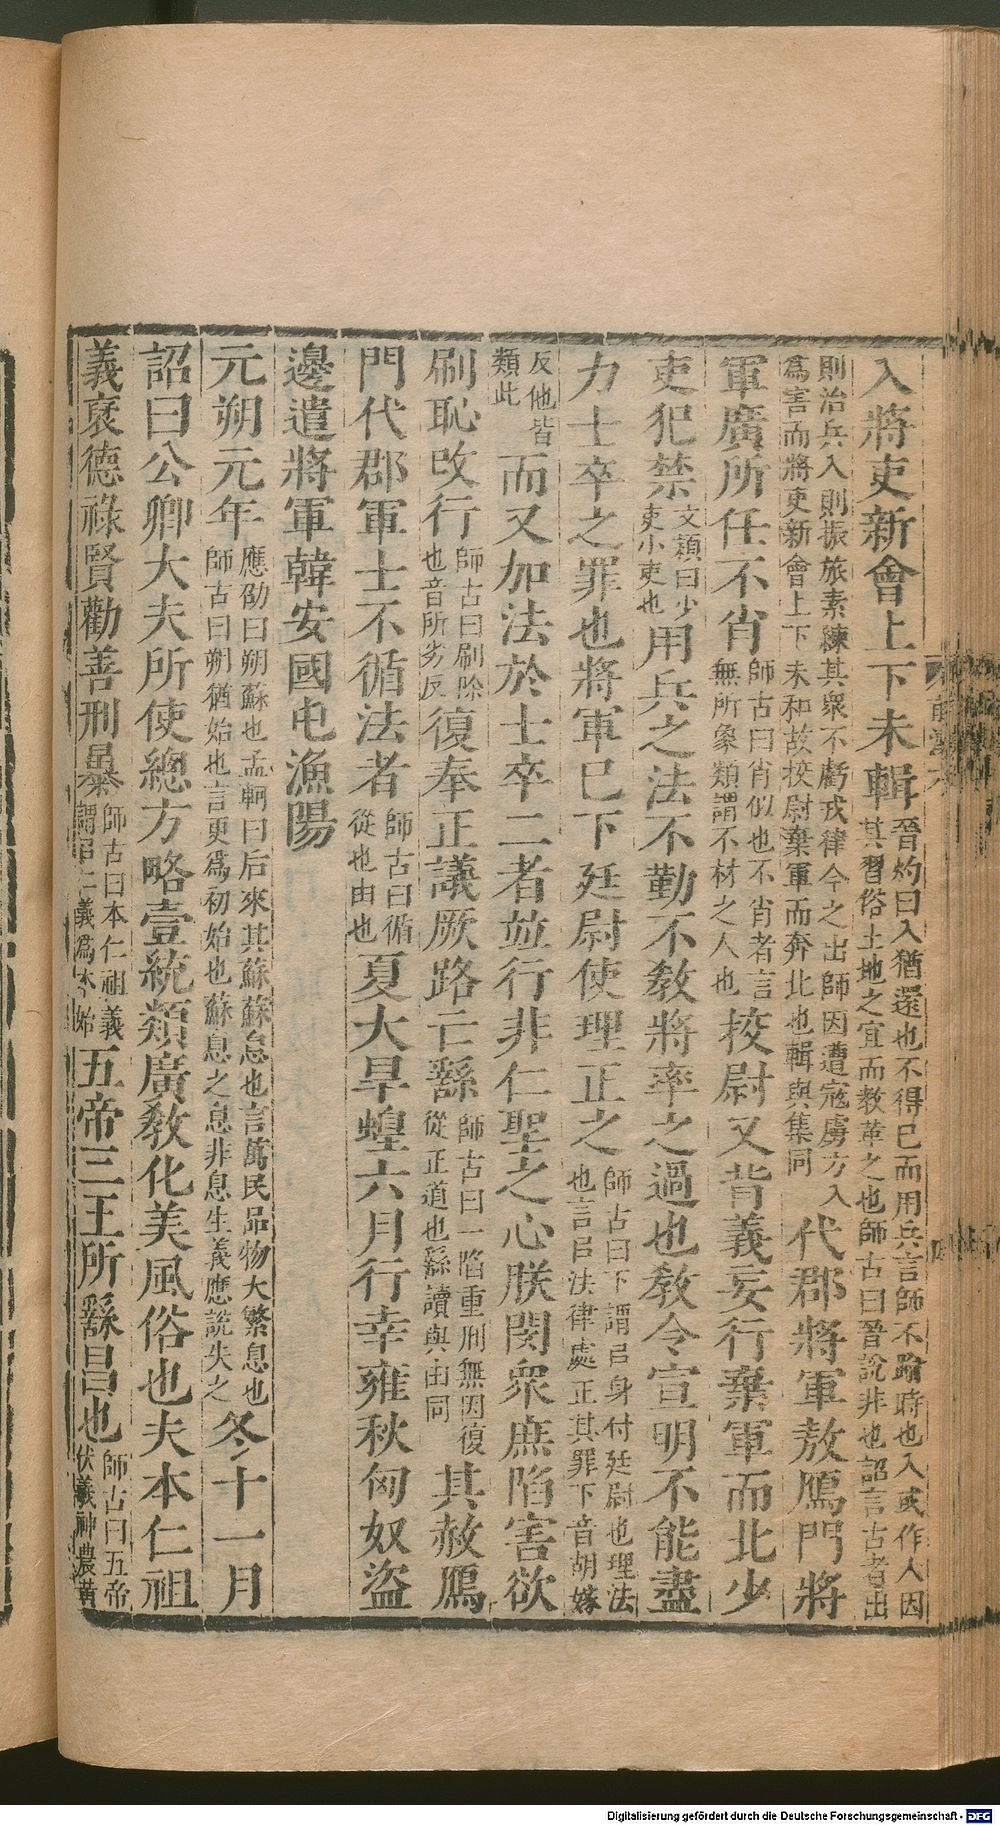 入將吏新會上下未輯晉灼曰入猶還也不得已而用兵言師不踰時也入或作人因其習俗土地之宜而教革之也師古曰晉說非也詔言古者出
則治兵入則振旅素練其衆不虧戎律今之出師因遭寇虜方入爲害而將吏新會上下未和故校尉棄軍而奔北也輯與集同代郡將軍敖鴈門將
軍廣所任不肖師古曰肖似也不肖者言無所象類謂不材之人也校尉又背義妄行棄軍而北少
吏犯禁文穎曰少吏小吏也用兵之法不勤不教將率之過也教令宣明不能盡
力士卒之罪也將軍已下廷尉使理正之師古曰下謂㠯身付廷尉也理法也言㠯法律處正其罪下音胡嫁
反他皆類此而又加法於士卒二者並行非仁聖之心朕閔衆庶陷害欲
刷恥改行師古曰刷除也音所劣反復奉正議厥路亡繇師古曰一陷重刑無因復從正道也繇讀與由同其赦鴈
門代郡軍士不循法者師古曰循從也由也夏大旱蝗六月行幸雍秋匈奴盜
邊遣將軍韓安國屯漁陽
元朔元年應劭曰朔蘇也孟軻曰后來其蘇蘇息也言萬民品物大繁息也師古曰朔猶始也言更爲初始也蘇息之息非息生義應說失之冬十一月
詔曰公卿大夫所使總方略壹統類廣教化美風俗也夫本仁祖
義襃德祿賢勸善刑㬥師古曰本仁祖義謂㠯仁義爲本始五帝三王所繇昌也師古曰五帝伏羲神農黃
Digitalisierung gefördert durch die Deutsche Forschungsgemeinschaft - DFG